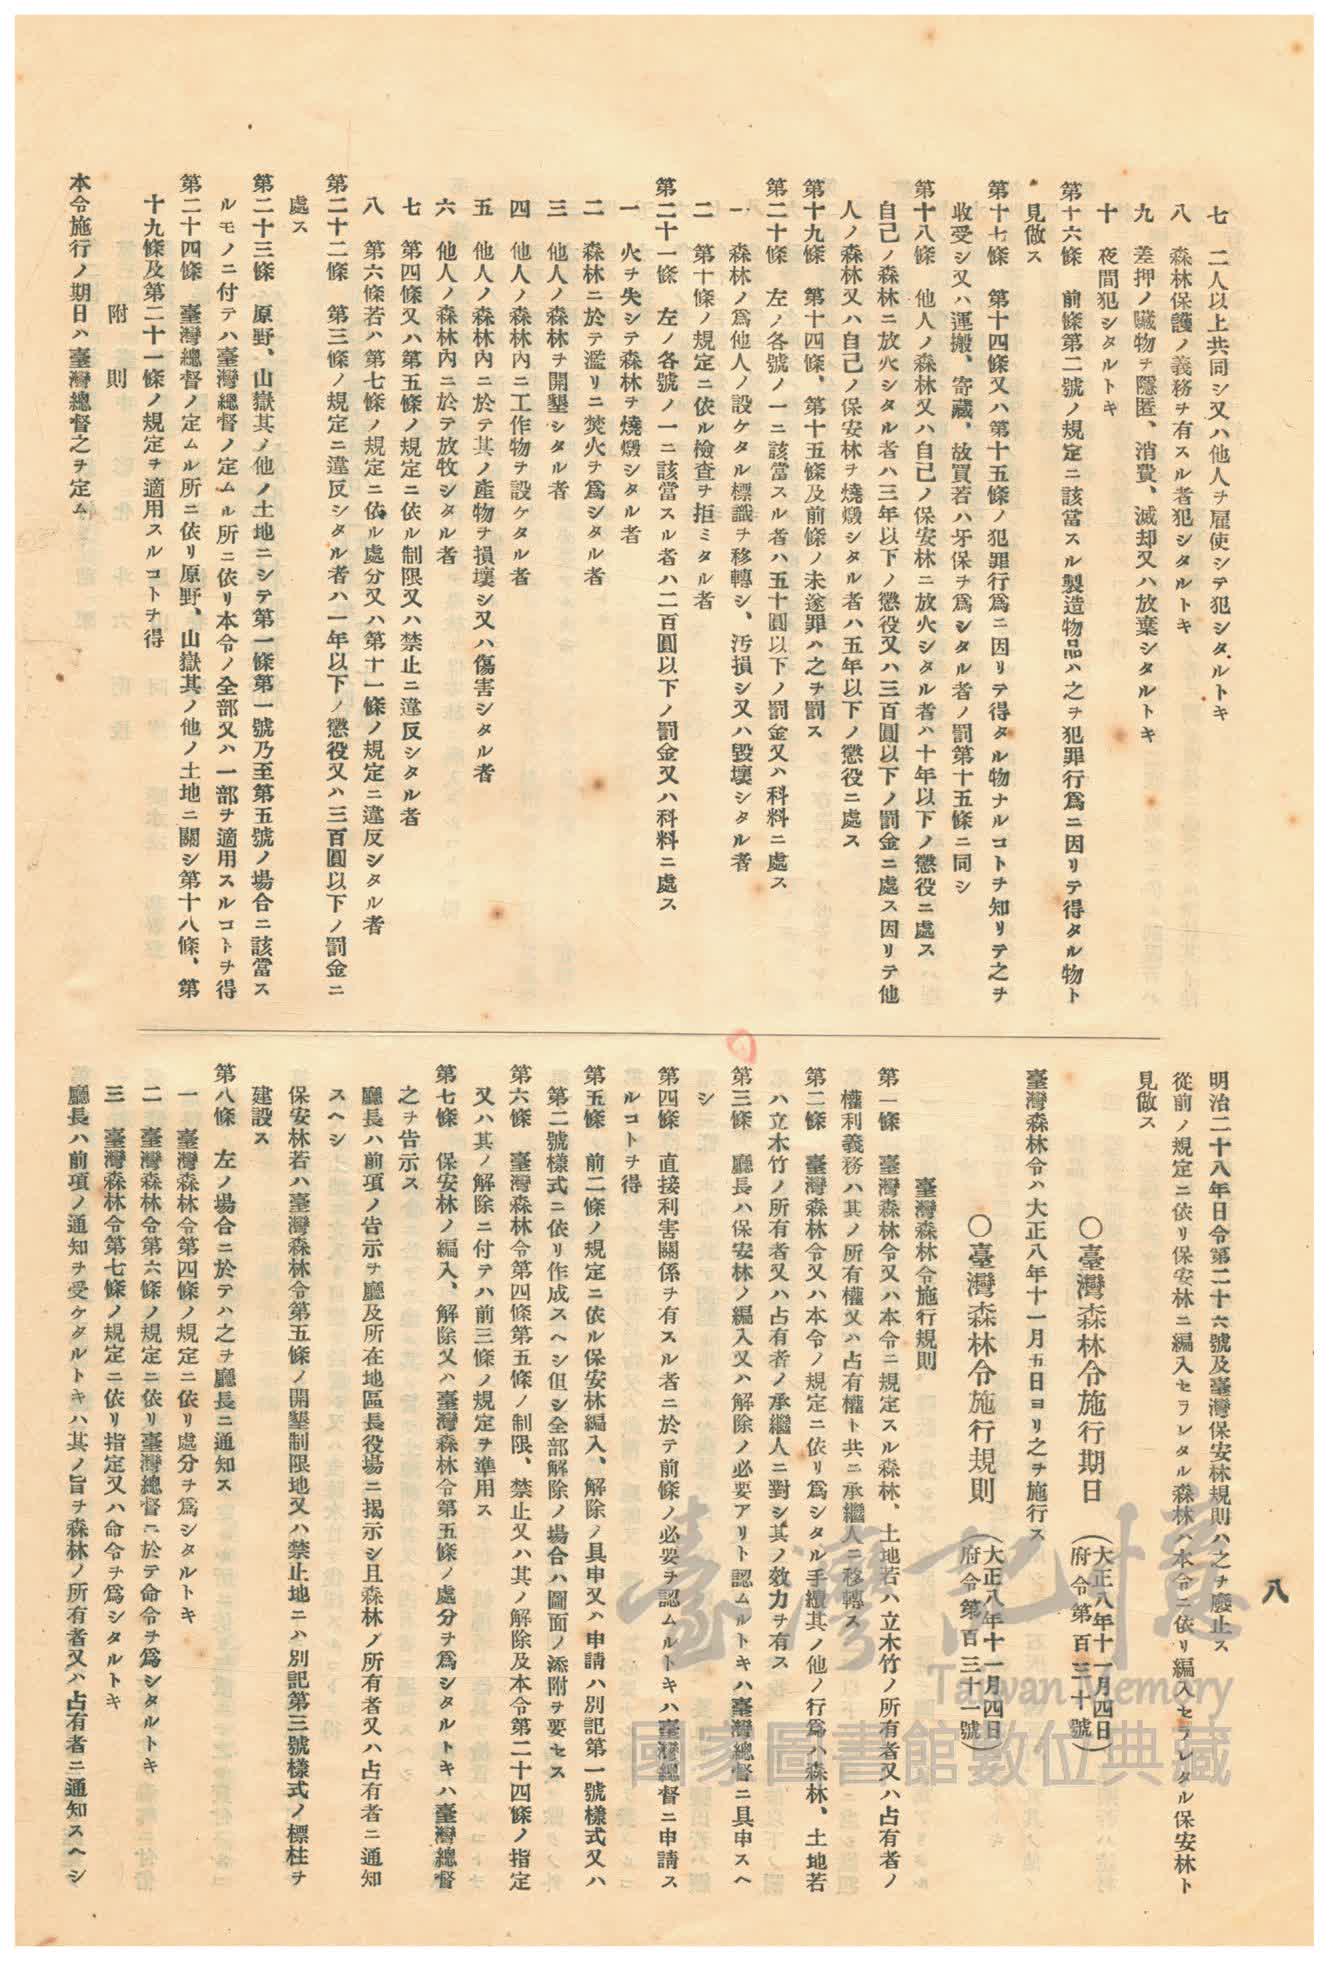 八
七　二人以上共同シ又ハ他人ヲ雇使シテ犯シタルトキ
八　森林保護ノ義務ヲ有スル者犯シタルトキ
九　差押ノ贓物ヲ隱匿、消費、滅却又ハ放棄シタルトキ
十　夜間犯シタルトキ
第十六條　前條第二號ノ規定ニ該當スル製造物品ハ之ヲ犯罪行爲ニ因リテ得タル物ト
見做ス
第十七條　第十四條又ハ第十五條ノ犯罪行爲ニ因リテ得タル物ナルコトヲ知リテ之ヲ
收受シ又ハ運搬、寄藏、故買若ハ牙保ヲ爲シタル者ノ罰第十五條ニ同シ
第十八條　他人ノ森林又ハ自己ノ保安林ニ放火シタル者ハ十年以下ノ懲役ニ處ス
自己ノ森林ニ放火シタル者ハ三年以下ノ懲役又ハ三百圓以下ノ罰金ニ處ス因リテ他
人ノ森林又ハ自己ノ保安林ヲ燒燬シタル者ハ五年以下ノ懲役ニ處ス
第十九條　第十四條、第十五條及前條ノ未遂罪ハ之ヲ罰ス
第二十條　左ノ各號ノ一ニ該當スル者ハ五十圓以下ノ罰金又ハ科料ニ處ス
一　森林ノ爲他人ノ設ケタル標識ヲ移轉シ、汚損シ又ハ毀壞シタル者
二　第十條ノ規定ニ依ル檢查ヲ拒ミタル者
第二十一條　左ノ各號ノ一ニ該當スル者ハ二百圓以下ノ罰金又ハ科料ニ處ス
一　火ヲ失シテ森林ヲ燒燬シタル者
二　森林ニ於テ濫リニ焚火ヲ爲シタル者
三　他人ノ森林ヲ開墾シタル者
四　他人ノ森林內ニ工作物ヲ設ケタル者
五　他人ノ森林內ニ於テ其ノ產物ヲ損壞シ又ハ傷害シタル者
六　他人ノ森林內ニ於テ放牧シタル者
七　第四條又ハ第五條ノ規定ニ依ル制限又ハ禁止ニ違反シタル者
八　第六條若ハ第七條ノ規定ニ依ル處分又ハ第十一條ノ規定ニ違反シタル者
第二十二條　第三條ノ規定ニ違反シタル者ハ一年以下ノ懲役又ハ三百圓以下ノ罰金ニ
處ス
第二十三條　原野、山嶽其ノ他ノ土地ニシテ第一條第一號乃至第五號ノ場合ニ該當ス
ルモノニ付テハ臺灣總督ノ定ムル所ニ依リ本令ノ全部又ハ一部ヲ適用スルコトヲ得
第二十四條　臺灣總督ノ定ムル所ニ依リ原野、山嶽其ノ他ノ土地ニ關シ第十八條、第
十九條及第二十一條ノ規定ヲ適用スルコトヲ得
附則
本令施行ノ期日ハ臺灣總督之ヲ定ム
明治二十八年日令第二十六號及臺灣保安林規則ハ之ヲ廢止ス
從前ノ規定ニ依リ保安林ニ編入セラレタル森林ハ本令ニ依リ編入セラレタル保安林ト
見做ス
〇臺灣森林令施行期日（大正八年十一月四日府令第百三十號）
臺灣森林令ハ大正八年十一月五日ヨリ之ヲ施行ス
〇臺灣森林令施行規則（大正八年十一月四日府令第百三十一號）
臺灣森林令施行規則
第一條　臺灣森林令又ハ本令ニ規定スル森林、土地若ハ立木竹ノ所有者又ハ占有者ノ
權利義務ハ其ノ所有權又ハ占有權ト共ニ承繼人ニ移轉ス
第二條　臺灣森林令又ハ本令ノ規定ニ依リ爲シタル手續其ノ他ノ行爲ハ森林、土地若
ハ立木竹ノ所有者又ハ占有者ノ承繼人ニ對シ其ノ效力ヲ有ス
第三條　廳長ハ保安林ノ編入又ハ解除ノ必要アリト認ムルトキハ臺灣總督ニ具申スヘ
シ
第四條　直接利害關係ヲ有スル者ニ於テ前條ノ必要ヲ認ムルトキハ臺灣總督ニ申請ス
ルコトヲ得
第五條　前二條ノ規定ニ依ル保安林編入、解除ノ具申又ハ申請ハ別記第一號樣式又ハ
第二號樣式ニ依リ作成スヘシ但シ全部解除ノ場合ハ圖面ノ添附ヲ要セス
第六條　臺灣森林令第四條第五條ノ制限、禁止又ハ其ノ解除及本令第二十四條ノ指定
又ハ其ノ解除ニ付テハ前三條ノ規定ヲ準用ス
第七條　保安林ノ編入、解除又ハ臺灣森林令第五條ノ處分ヲ爲シタルトキハ臺灣總督
之ヲ告示ス
廳長ハ前項ノ告示ヲ廳及所在地區長役場ニ揭示シ且森林ノ所有者又ハ占有者ニ通知
スヘシ
保安林若ハ臺灣森林令第五條ノ開墾制限地又ハ禁止地ニハ別記第三號樣式ノ標柱ヲ
建設ス
第八條　左ノ場合ニ於テハ之ヲ廳長ニ通知ス
一　臺灣森林令第四條ノ規定ニ依リ處分ヲ爲シタルトキ
二　臺灣森林令第六條ノ規定ニ依リ臺灣總督ニ於テ命令ヲ爲シタルトキ
三　臺灣森林令第七條ノ規定ニ依リ指定又ハ命令ヲ爲シタルトキ
廳長ハ前項ノ通知ヲ受ケタルトキハ其ノ旨ヲ森林ノ所有者又ハ占有者ニ通知スヘシ
臺灣記憶
Taiwan Memory
國家圖書館數位典藏